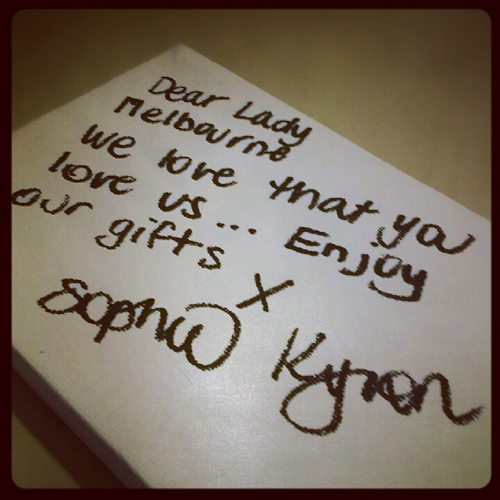 Dear Lady
Melbourne
We love that you
love us... Enjoy
our gifts X
Sophia Kyron